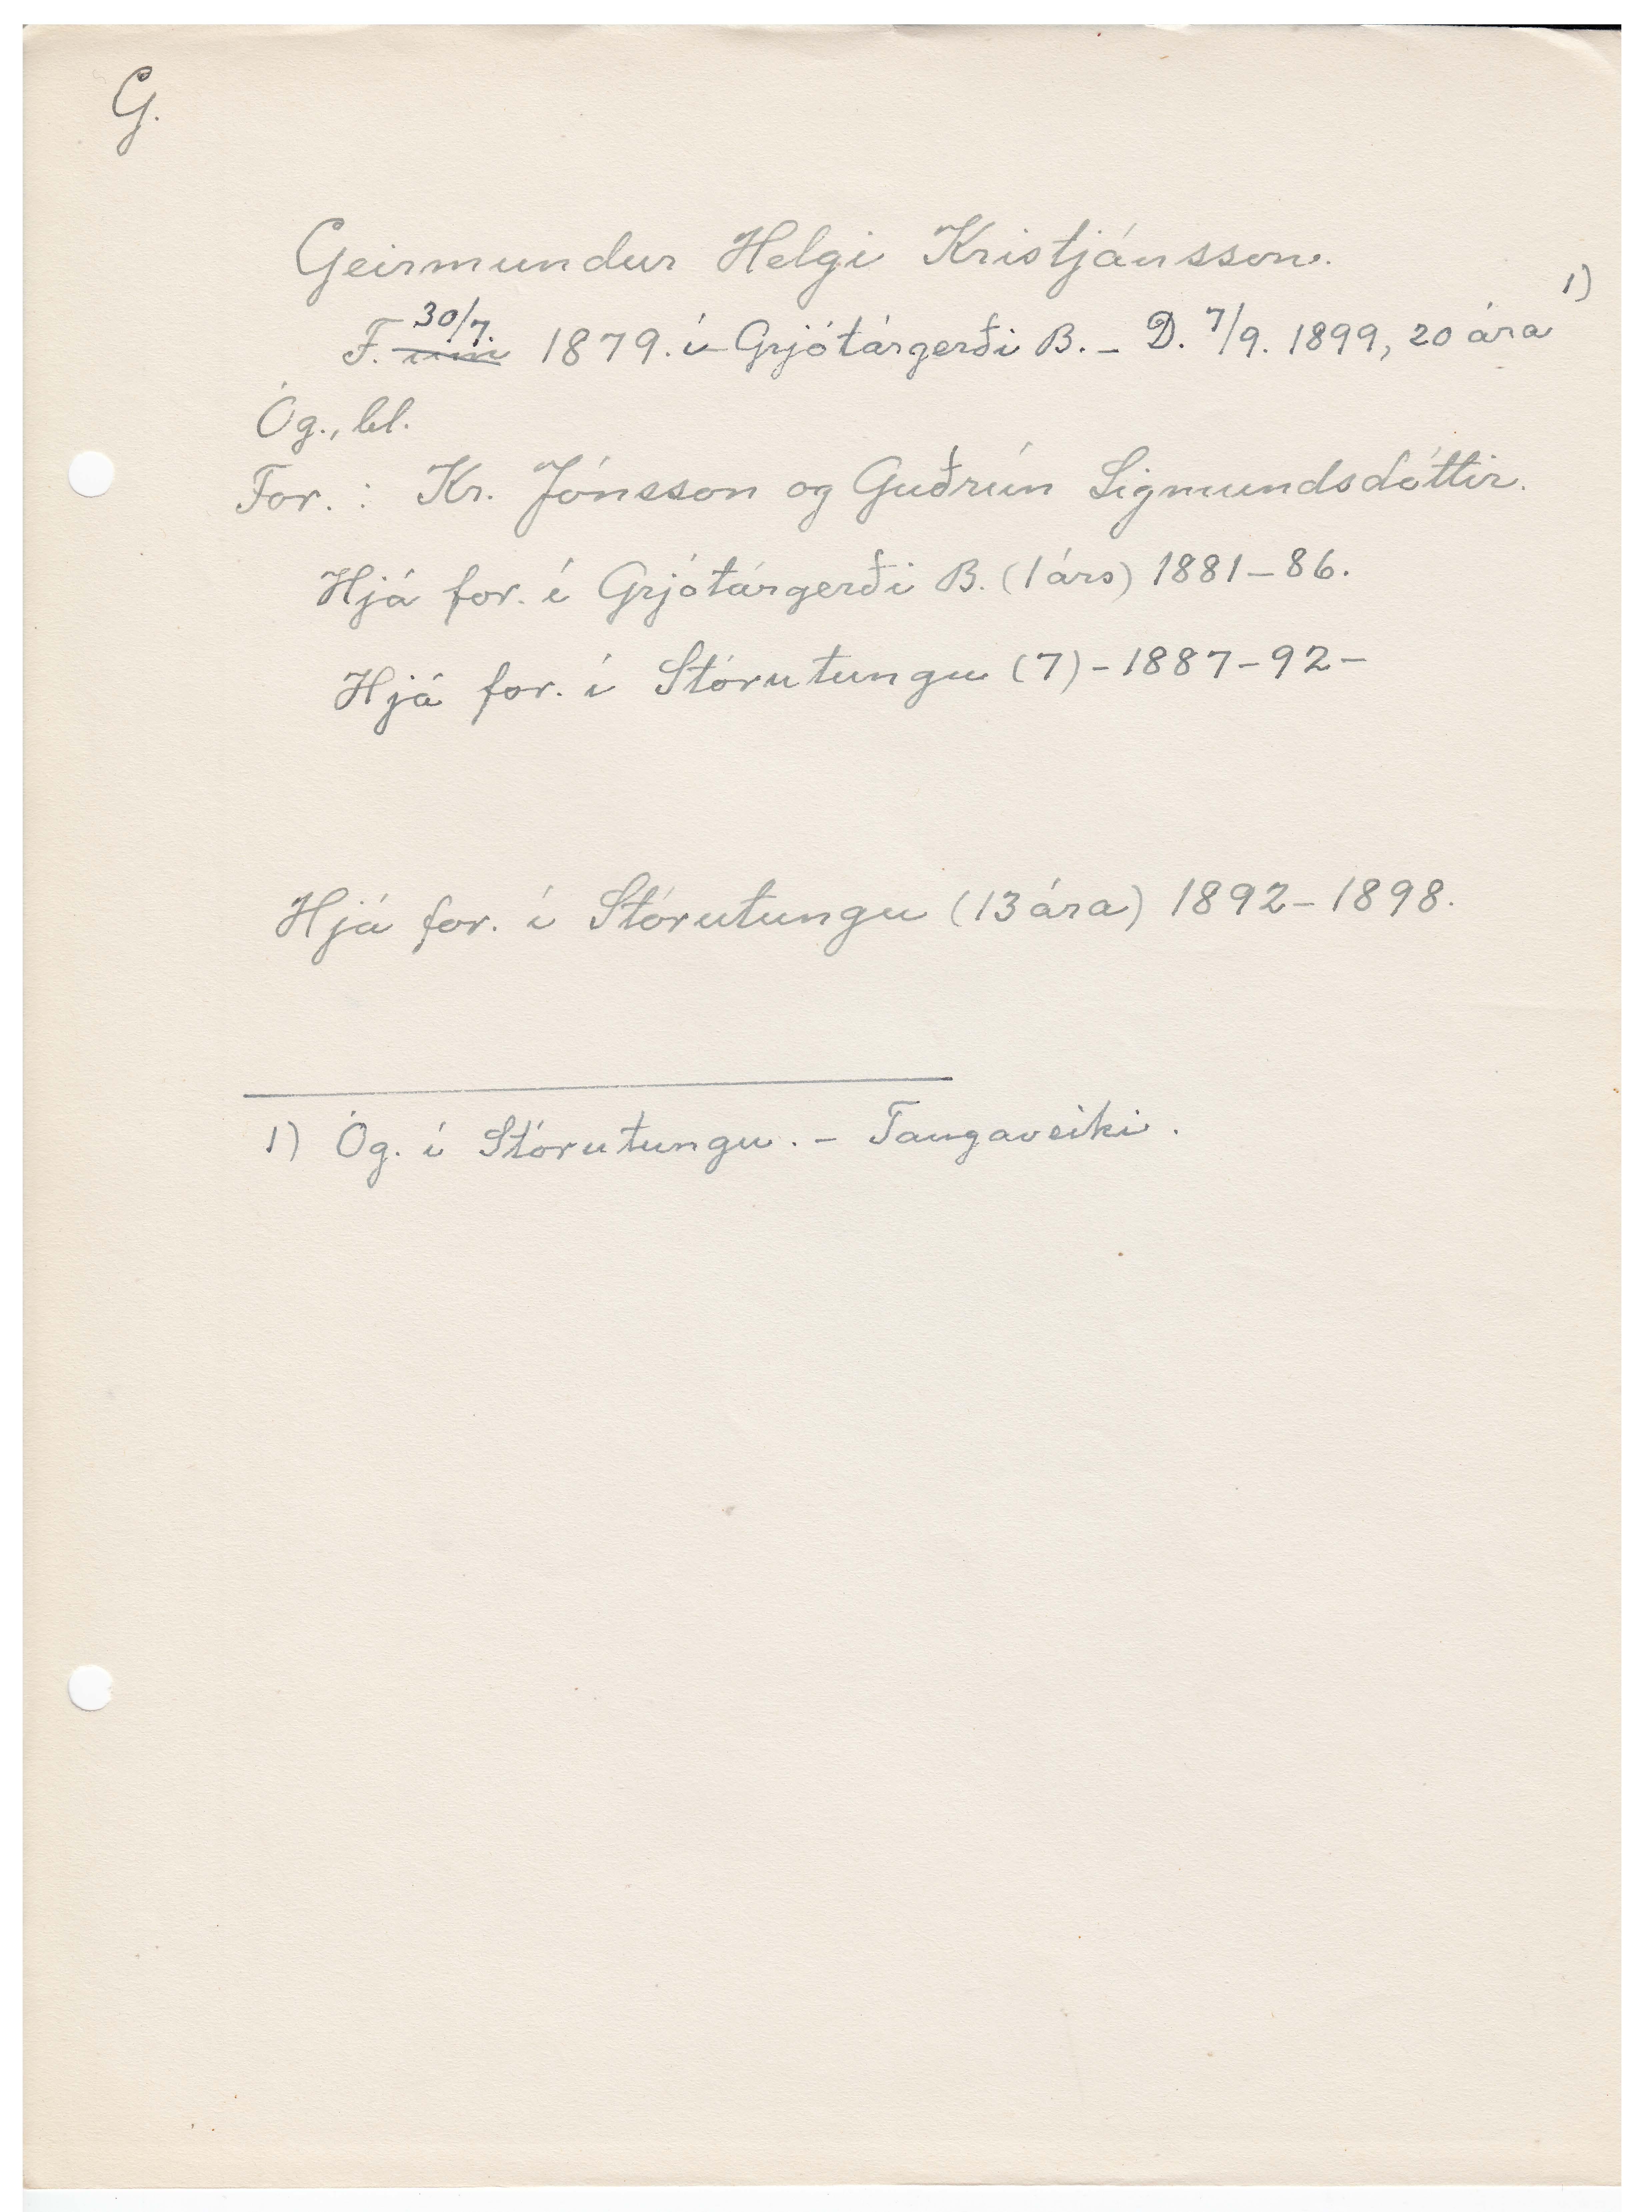 G.
Geirmundur Helgi Kristjánsson.
F. um 30/7. 1879. í Grjótárgerði B. - D. 7/9. 1899, 20 ára 1)
Óg., bl.
For. : Kr. Jónsson og Guðrún Sigmundsdóttir.
Hjá for. í Grjótárgerði B. (1 árs) 1881-86.
Hjá for. í Stórutungu (7) - 1887-92-
Hjá for. í Stórutungu (13 ára) 1892-1898.
1) Óg. í Stórutungu. - Taugaveiki.